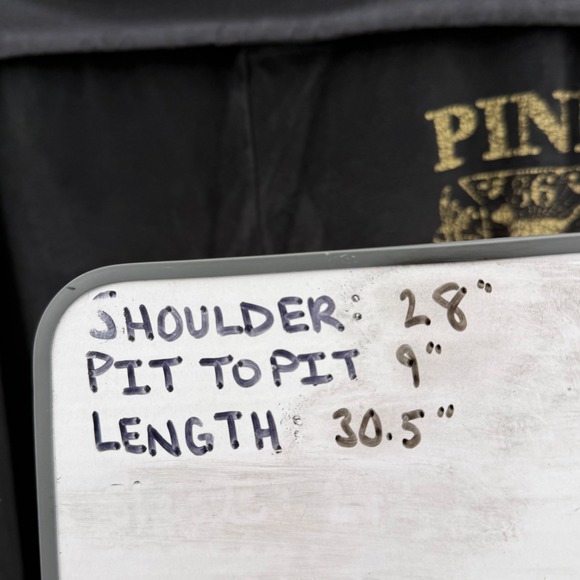 PIN
86
SHOULDER: 28"
PIT TO PIT 9"
LENGTH: 30.5"